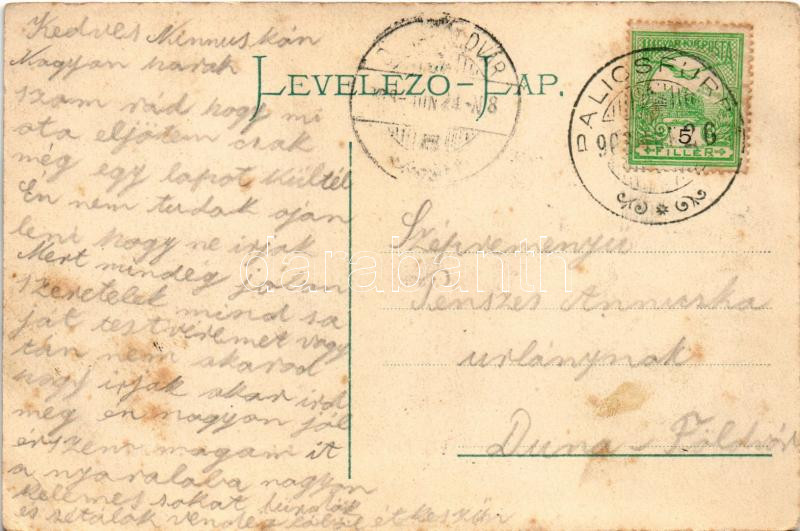 Kedves Ninnuskán
Nagyon harak
szom rád hogy mi
ota eljötem csak
még egy lapot kültél
Én nem tudok oján
leni hogy ne irjak
Mert mindég jólan
szeretelek mind sa
ját testvéremet vagy
tán nem akarod
hogy irjak akar ird
meg én nagyon jól
érszem magam it
a nyaralóba nagyon
kelemes sokat
és sétálok étkezőn
LEVELEZŐ-LAP.
MAGYAR KIR. POSTA
5
FILLÉR
PALICSFÜRDŐ
Szépreményű
Penszes Annuska
urlánynak
Duna-Földvár
darabanth